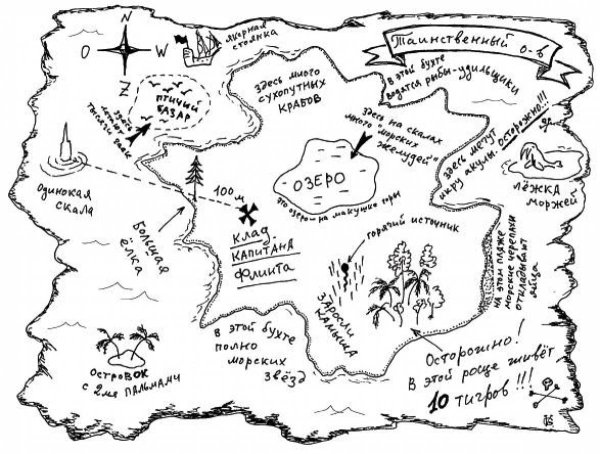 N
O
W
Z
Якорная
стоянка
Таинственный о-в
Птичий
базар
Здесь
летают
тысячи чаек
Здесь много
сухопутных
крабов
В этой бухте
водятся рыбы-удильщики
Здесь на скалах
много "морских
желудей"
Здесь мечут
икру акулы. Осторожно!!!
Лёжка
моржей
Одинокая
скала
100 м
Озеро
это озеро - на макушке горы
Большая
ёлка
Клад
капитана
Флинта
Горячий источник
Заросли
камыша
На этом пляже
морские черепахи
откладывают
яйца
В этой бухте
полно
морских
звёзд
Островок
с 2мя пальмами
Осторожно!
В этой роще живёт
10 тигров!!!